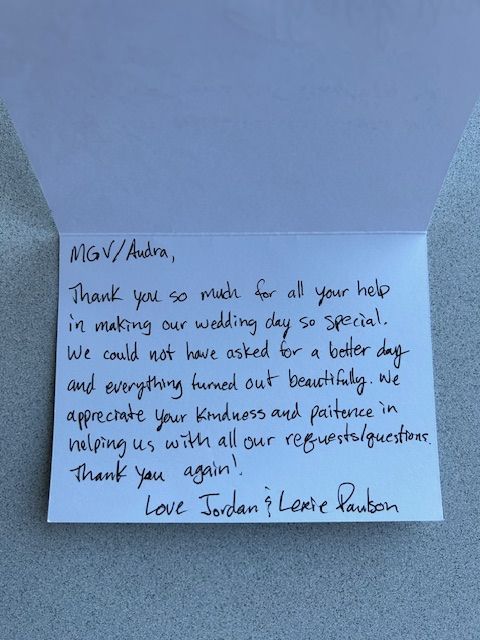 MGV/Audra,
Thank you so much for all your help
in making our wedding day so special.
We could not have asked for a better day
and everything turned out beautifully. We
appreciate your kindness and paitence in
helping us with all our requests/questions.
Thank you again!
Love Jordan & Lexie Paulson